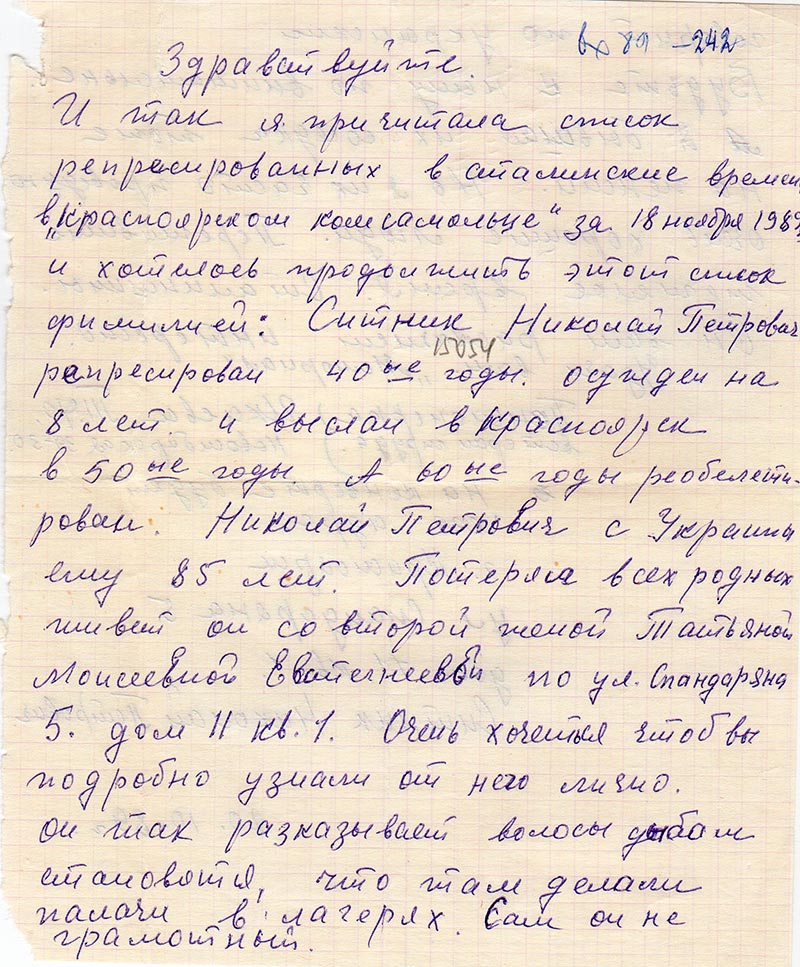 вх 89 – 242
Здравствуйте.
И так я причитала список
репресированных в сталинские времен
в „Красноярском комсамольце“ за 18 ноября 1989
и хотелось продолжить этот список
фимилией: Ситник Николай Петрович
15054
репресирован 40ые годы. осужден на
8 лет. и выслан в Красноярск
в 50ые годы. А 60ые годы реобелети-
рован. Николай Петрович с Украины
ему 85 лет. Потерял всех родных
живет он со второй женой Татьяной
Моисеевной по ул. Спандаряна
5. дом 11 кв. 1. Очень хочеться чтоб вы
подробно узнали от него лично.
он так разказывает волосы дыбом
становятся, что там делали
палачи в лагерях. Сам он не
грамотный.